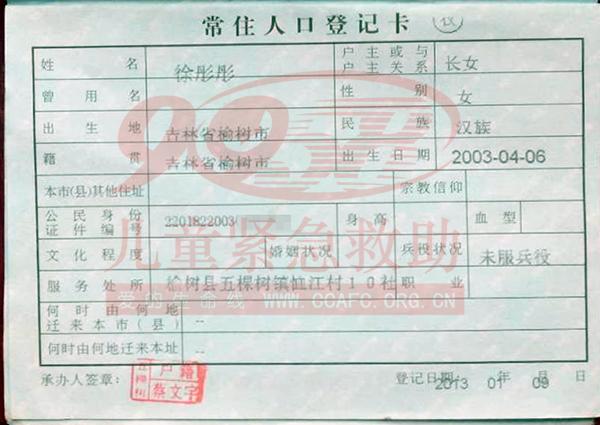 常住人口登记卡
姓名 徐彤彤 户主或与户主关系 长女
曾用名 性别 女
出生地 吉林省榆树市 民族 汉族
籍贯 吉林省榆树市 出生日期 2003-04-06
本市(县)其他住址 宗教信仰
公民身份证件编号 2201822003 身高 血型
文化程度 婚姻状况 兵役状况 未服兵役
服务处所 榆树县五棵树镇恤江村10社 职业
何时由何地迁来本市(县) --
何时由何地迁来本址 --
承办人签章: 户籍 蔡文宇 登记日期: 2013 01 年 09 月 日
儿童紧急救助
爱的生命线 WWW.CCAFC.ORG.CN